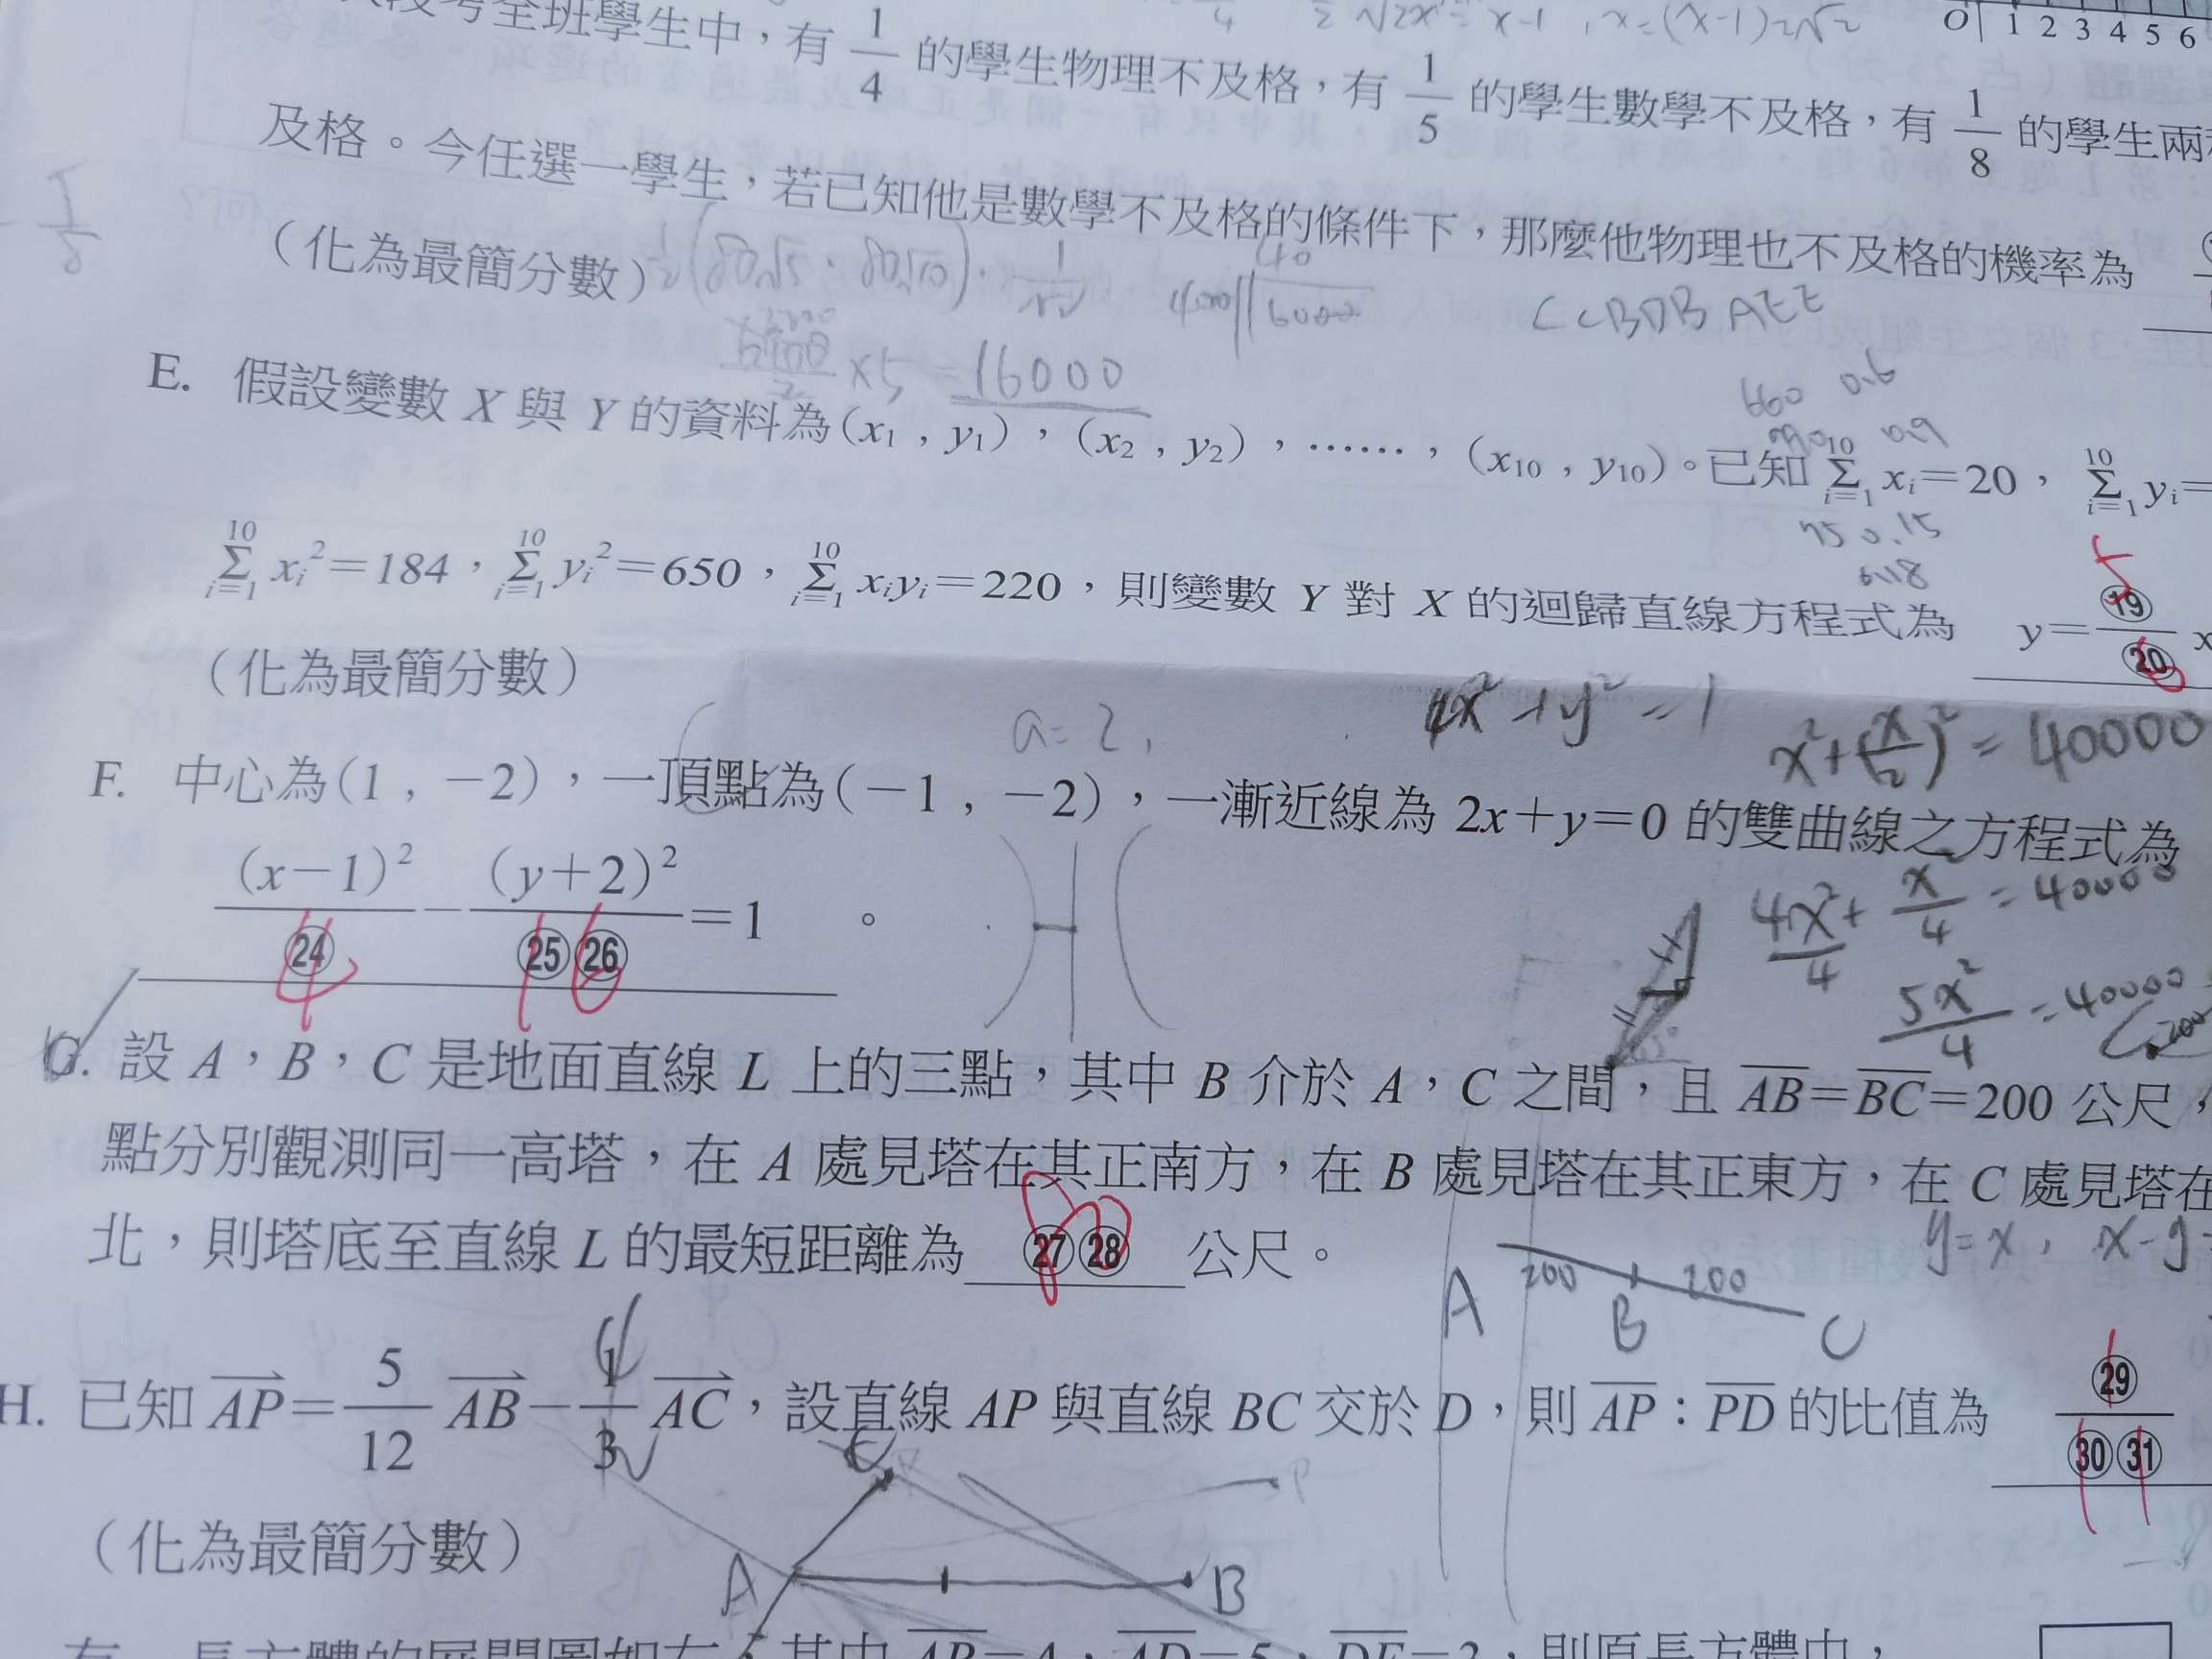 段考全班學生中，有 1/4 的學生物理不及格，有 1/5 的學生數學不及格，有 1/8 的學生兩
O 1 2 3 4 5 6
及格。今任選一學生，若已知他是數學不及格的條件下，那麼他物理也不及格的機率為
（化為最簡分數）
CCBDBAEE
×5 = 16000
660 0.6
E. 假設變數 X 與 Y 的資料為(x₁，y₁)，(x₂，y₂)，……，(x₁₀，y₁₀)。已知 10Σi=1 xᵢ=20，10Σi=1 yᵢ=
75 0.15
10Σi=1 xᵢ²=184，10Σi=1 yᵢ²=650，10Σi=1 xᵢyᵢ=220，則變數 Y 對 X 的迴歸直線方程式為 y=⑲/⑳ x
（化為最簡分數）
a=2,
4x²+y²=1
x²+(x/2)²=40000
F. 中心為(1，－2)，一頂點為(－1，－2)，一漸近線為 2x＋y＝0 的雙曲線之方程式為
(x－1)²/㉔－(y＋2)²/㉕㉖＝1。
4x²/4+x²/4=40000
5x²/4=40000
G. 設 A，B，C 是地面直線 L 上的三點，其中 B 介於 A，C 之間，且 AB＝BC＝200 公尺，
點分別觀測同一高塔，在 A 處見塔在其正南方，在 B 處見塔在其正東方，在 C 處見塔在
北，則塔底至直線 L 的最短距離為㉗㉘公尺。
y=x, x-y
A 200 B 200 C
H. 已知 AP＝5/12 AB－1/3 AC，設直線 AP 與直線 BC 交於 D，則 AP：PD 的比值為 ㉙/㉚㉛
（化為最簡分數）
C
P
A B
有一長方體的展開圖如右，其中 AB＝4，AD＝5，DE＝3，則原長方體中，